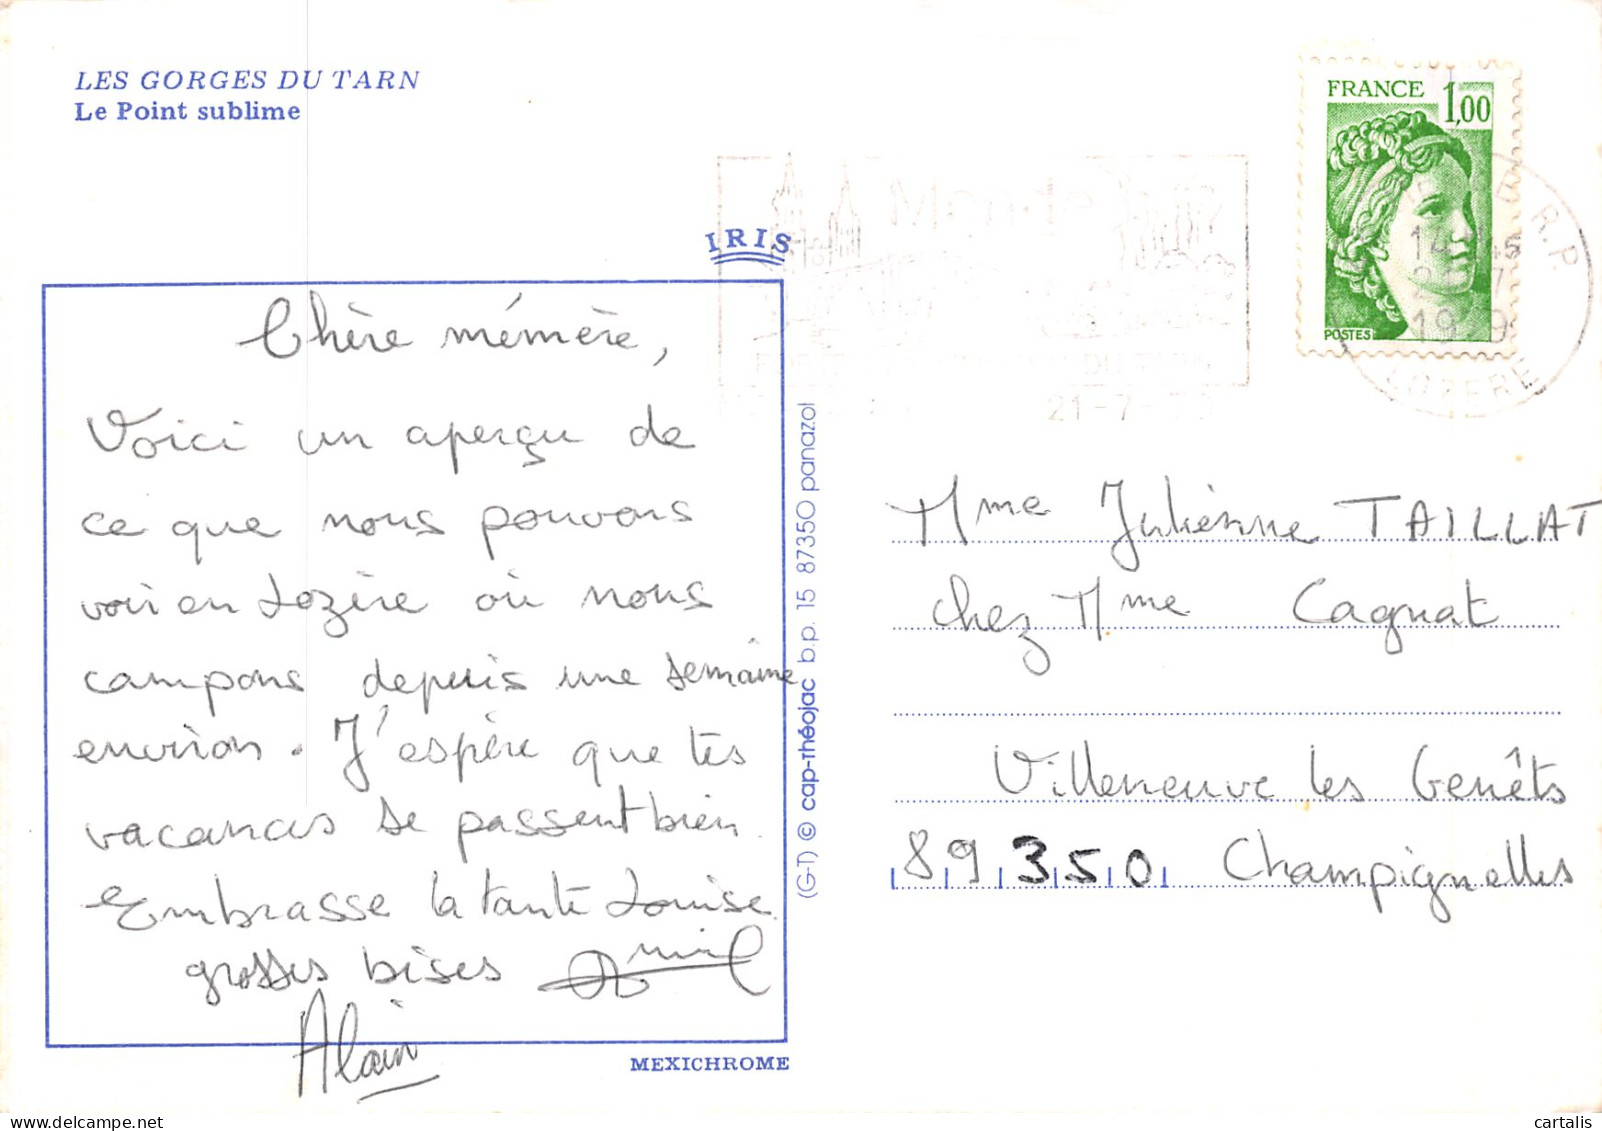 LES GORGES DU TARN
Le Point sublime
IRIS
FRANCE 1,00
POSTES
Mende
R.P.
LOZERE
21-7-
Chère mémère,
Voici un aperçu de
ce que nous pouvons
voir en Lozère où nous
campons depuis une semaine
environ. J'espère que tes
vacances se passent bien.
Embrasse la tante Louise.
grosses bises
Alain
MEXICHROME
(G-T) © cap-théojac b.p. 15 87350 panazol
Mme Julienne TAILLAT
chez Mme Cagnat
Villeneuve les Genêts
89350 Champignelles
cartalis
www.delcampe.net